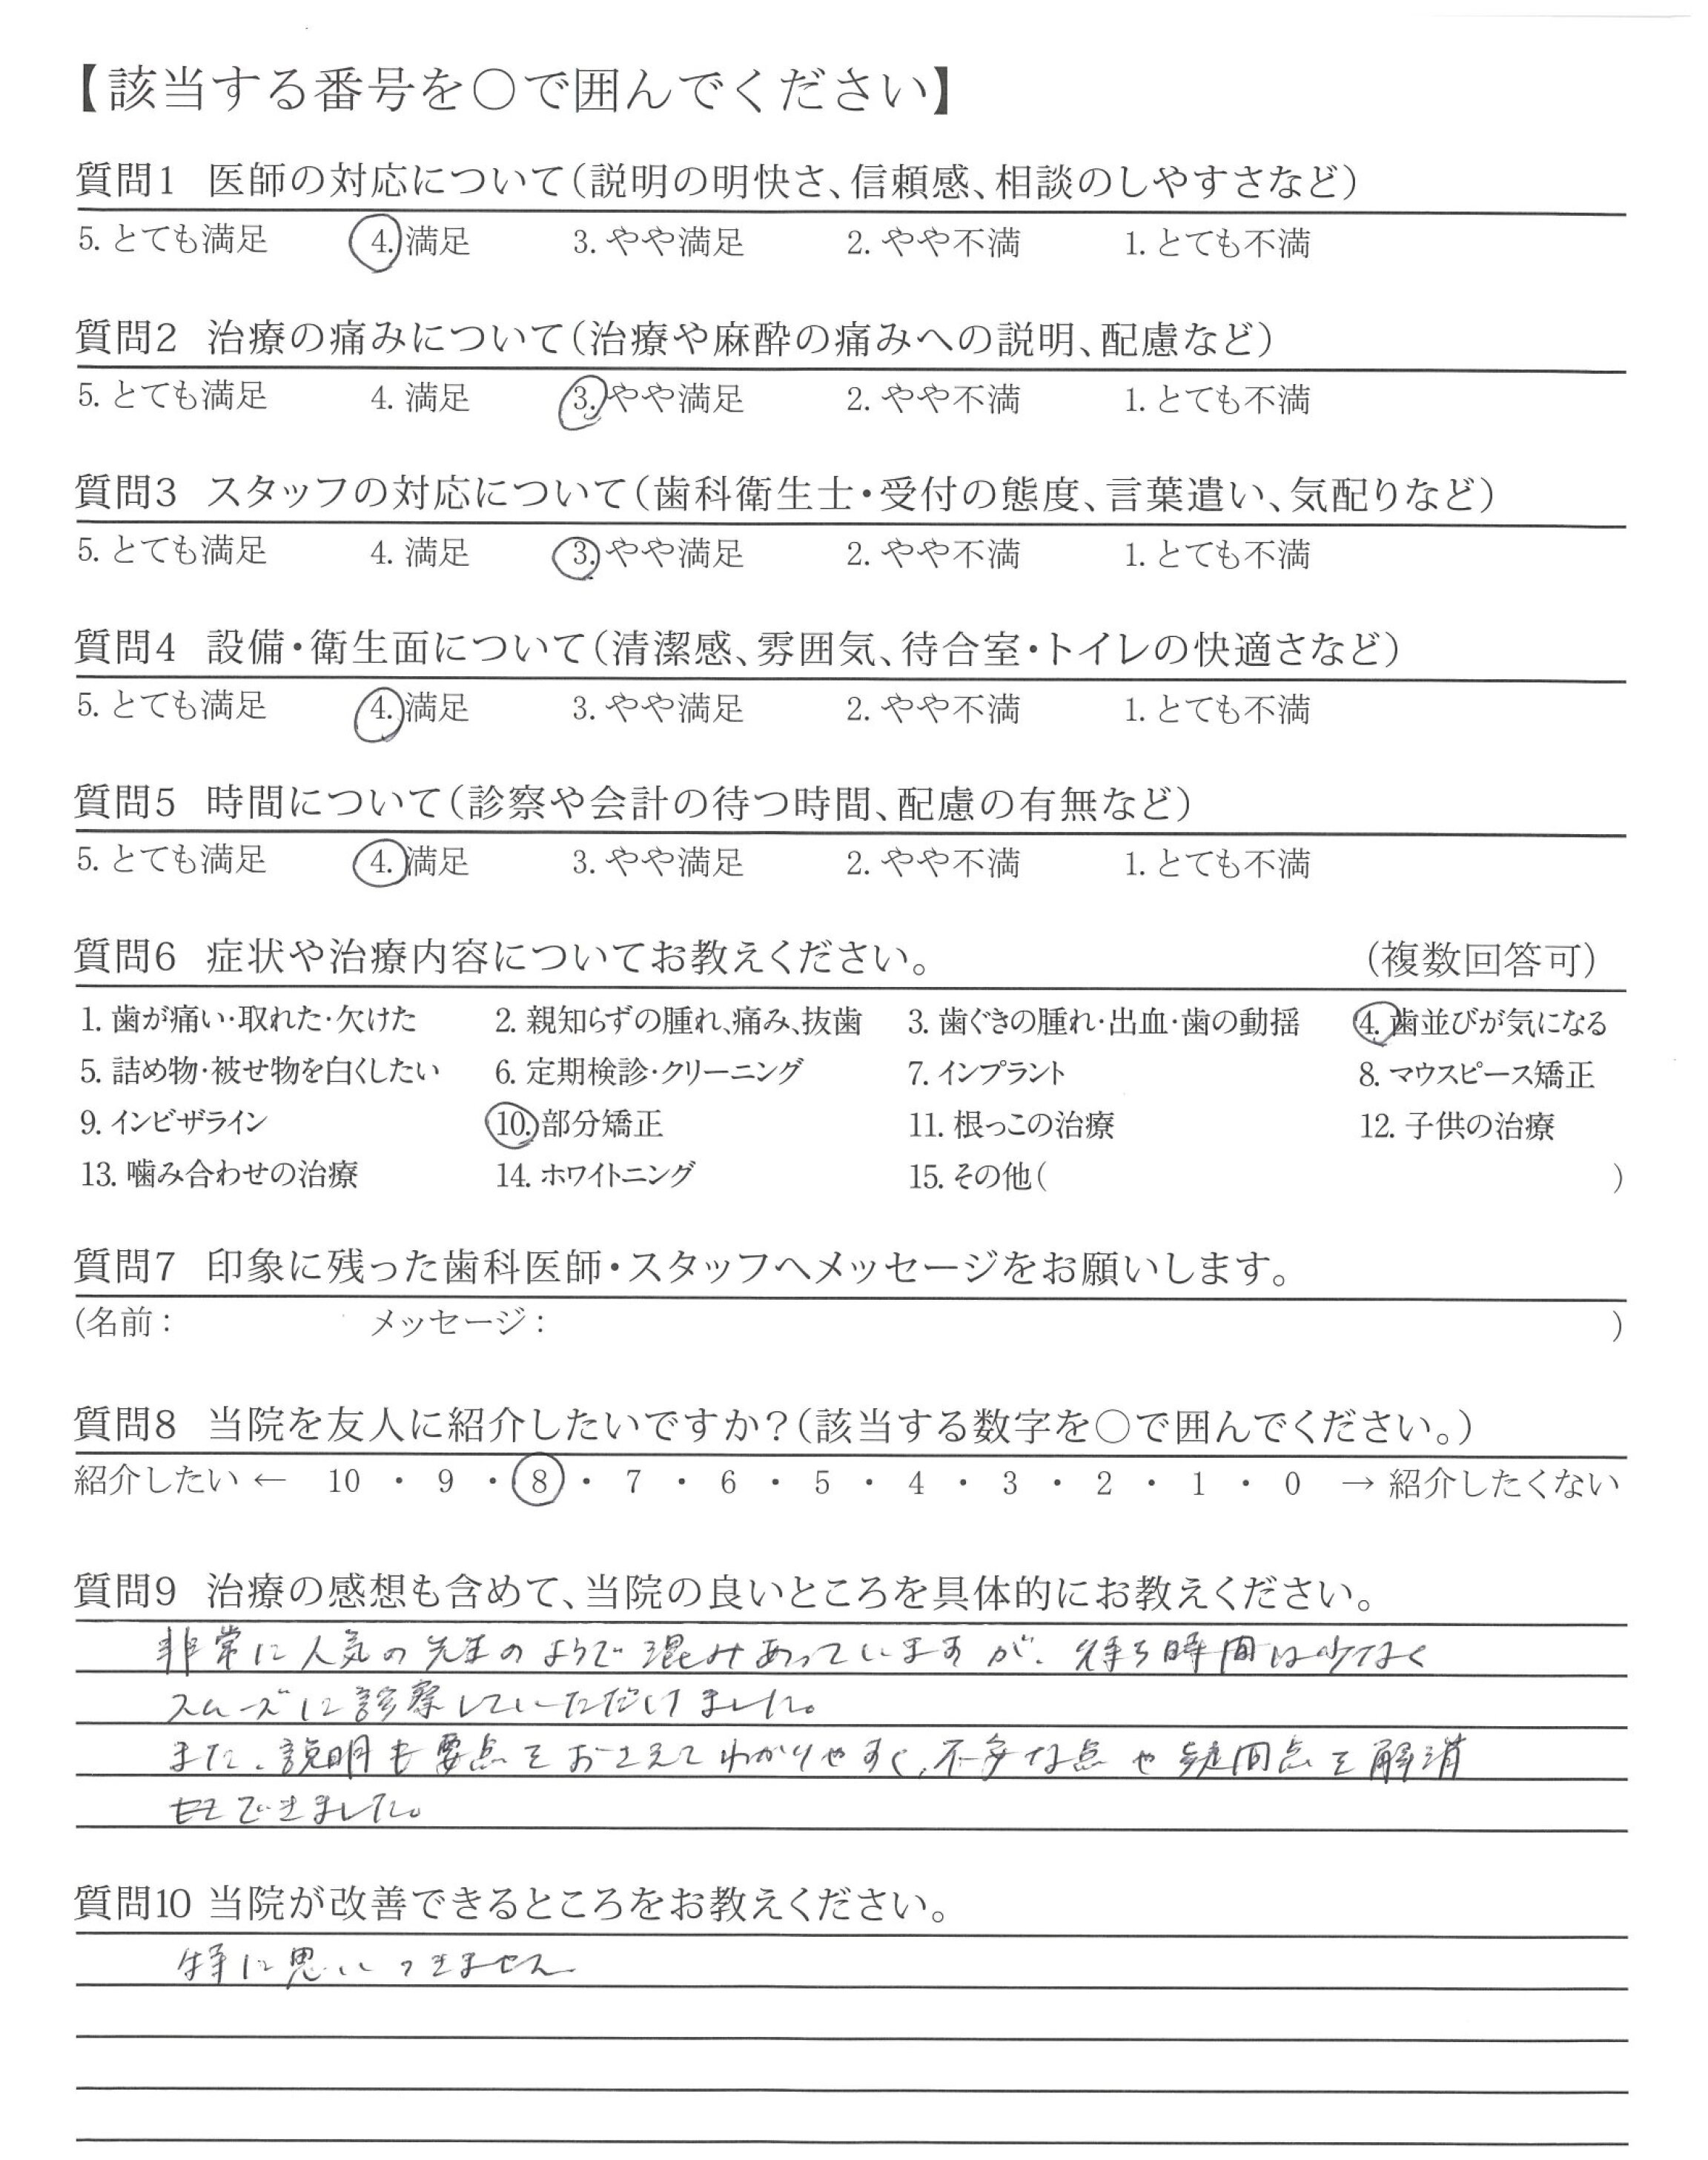 【該当する番号を○で囲んでください】
質問1 医師の対応について（説明の明快さ、信頼感、相談のしやすさなど）
5. とても満足 4. 満足 3. やや満足 2. やや不満 1. とても不満
質問2 治療の痛みについて（治療や麻酔の痛みへの説明、配慮など）
5. とても満足 4. 満足 3. やや満足 2. やや不満 1. とても不満
質問3 スタッフの対応について（歯科衛生士・受付の態度、言葉遣い、気配りなど）
5. とても満足 4. 満足 3. やや満足 2. やや不満 1. とても不満
質問4 設備・衛生面について（清潔感、雰囲気、待合室・トイレの快適さなど）
5. とても満足 4. 満足 3. やや満足 2. やや不満 1. とても不満
質問5 時間について（診察や会計の待つ時間、配慮の有無など）
5. とても満足 4. 満足 3. やや満足 2. やや不満 1. とても不満
質問6 症状や治療内容についてお教えください。 （複数回答可）
1. 歯が痛い・取れた・欠けた 2. 親知らずの腫れ、痛み、抜歯 3. 歯ぐきの腫れ・出血・歯の動揺 4. 歯並びが気になる
5. 詰め物・被せ物を白くしたい 6. 定期検診・クリーニング 7. インプラント 8. マウスピース矯正
9. インビザライン 10. 部分矯正 11. 根っこの治療 12. 子供の治療
13. 噛み合わせの治療 14. ホワイトニング 15. その他（ ）
質問7 印象に残った歯科医師・スタッフへメッセージをお願いします。
(名前： メッセージ： )
質問8 当院を友人に紹介したいですか？（該当する数字を○で囲んでください。）
紹介したい ← 10 ・ 9 ・ 8 ・ 7 ・ 6 ・ 5 ・ 4 ・ 3 ・ 2 ・ 1 ・ 0 → 紹介したくない
質問9 治療の感想も含めて、当院の良いところを具体的にお教えください。
非常に人気の先生のようで混みあっていますが、待ち時間は少なく
スムーズに診察していただけました。
また、説明も要点をおさえてわかりやすく、不安な点や疑問点を解消
できました。
質問10 当院が改善できるところをお教えください。
特に思いつきません